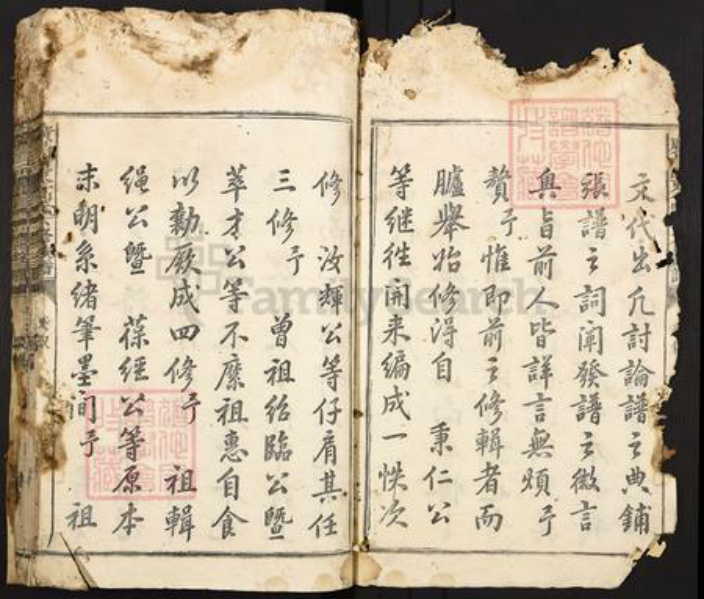 文代出凡討論譜之典鋪
張譜之詞闡發譜之微言
奧旨前人皆詳言無煩予
贅予惟即前之修輯者而
臚舉始修淂自 秉仁公
等继徃開来编成一帙次
修 汝輝公等仔肩其任
三修予 曾祖紹臨公暨
萃才公等不縻祖惠自食
以勷厥成四修予 祖輯
绳公暨 葆經公等原本
末明系绪筆墨间予 祖
FamilySearch